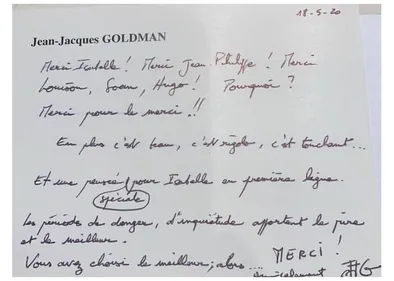 18-5-20
Jean-Jacques GOLDMAN
Merci Isabelle ! Merci Jean-Philippe ! Merci
Louison, Soan, Hugo ! Pourquoi ?
Merci pour le merci !!
En plus c'est beau, c'est rigolo, c'est touchant...
Et une pensée spéciale pour Isabelle en première ligne.
Les périodes de danger, d'inquiétude apportent le pire
et le meilleur.
Vous avez choisi le meilleur ; alors... MERCI !
amicalement JJG